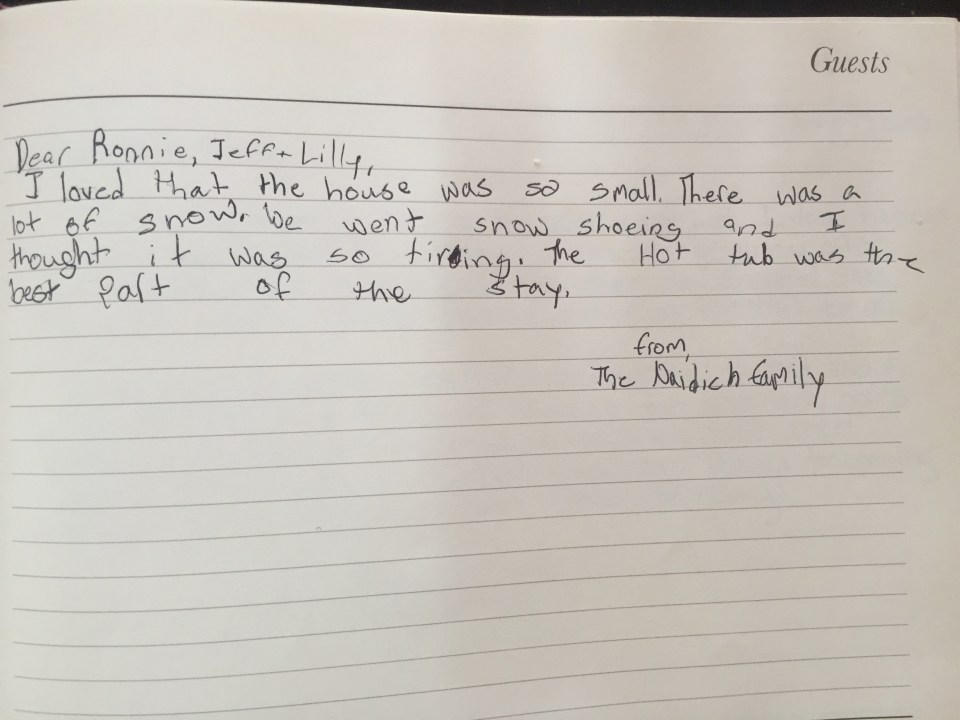 Guests
Dear Ronnie, Jeff + Lilly,
I loved that the house was so small. There was a
lot of snow. We went snow shoeing and I
thought it was so tireing. The Hot tub was the
best part of the stay.
from,
The Naidich family